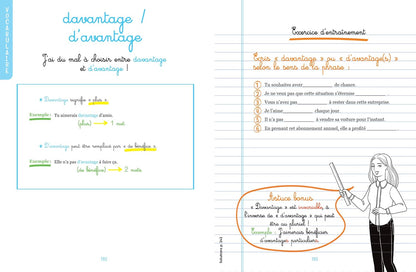 VOCABULAIRE
davantage /
d'avantage
J'ai du mal à choisir entre davantage
et d'avantage !
« Davantage » signifie « plus ».
Exemple : Tu aimerais davantage d'amis.
(plus) → 1 mot
« D'avantage » peut être remplacé par « de bénéfice ».
Exemple : Elle n'a pas d'avantage à faire ça.
(de bénéfice) → 2 mots
Exercice d'entraînement
Écris « davantage » ou « d'avantage(s) »
selon le sens de la phrase :
1 Tu souhaites avoir de choses.
2 Je ne veux pas que cette situation s'éternise
3 Vous n'avez pas à rester dans cette entreprise.
4 Je t'aime chaque jour.
5 Il n'a pas à vendre sa voiture pour l'instant.
6 En prenant cet abonnement annuel, elle a profité
Astuce bonus
« Davantage » est invariable, à
l'inverse de « d'avantage » qui peut
être au pluriel !
Exemple : J'aimerais bénéficier
d'avantages particuliers.